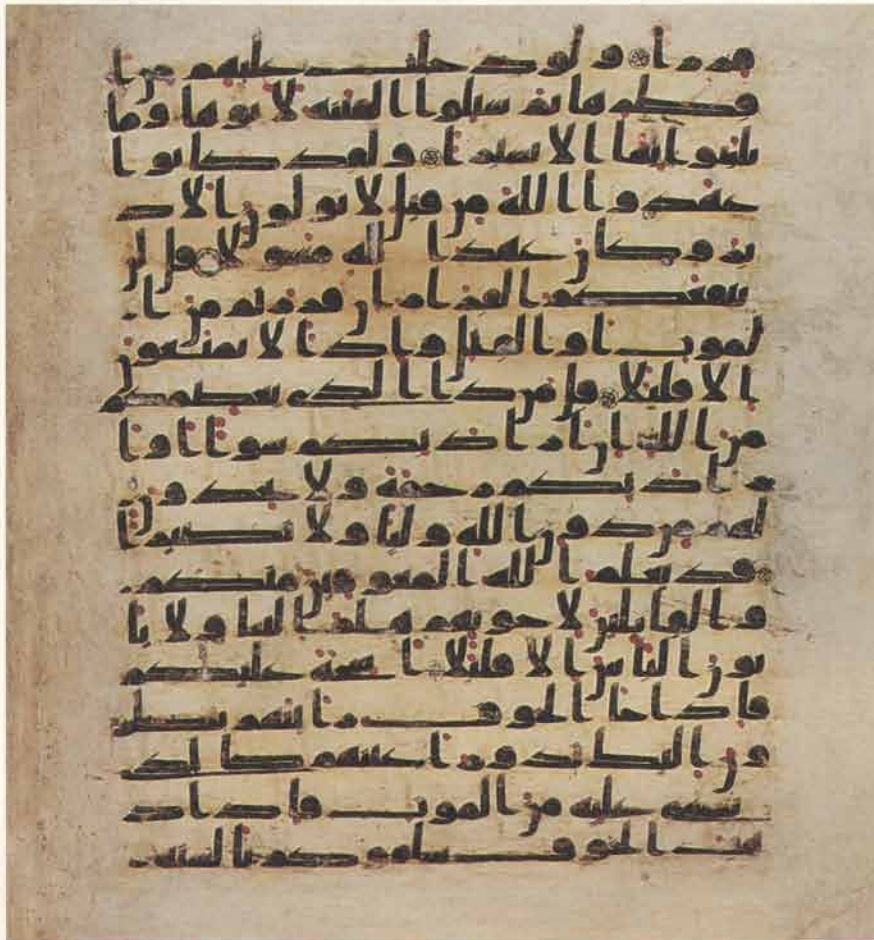 فرارا ولو دخلت عليهم من ا
قطرها ثم سئلوا الفتنة لاتوها وما
تلبثوا بها الا يسيرا ولقد كانوا
عهدوا الله من قبل لا يولون الاد
بر وكان عهد الله مسئولا قل لن
ينفعكم الفرار ان فررتم من ا
لموت او القتل واذا لا تمتعون
الا قليلا قل من ذا الذي يعصمكم
من الله ان اراد بكم سوا او ا
راد بكم رحمة ولا يجدون
لهم من دون الله وليا ولا نصيرا
قد يعلم الله المعوقين منكم
والقايلين لاخونهم هلم الينا ولا يا
تون الباس الا قليلا اشحة عليكم
فاذا جا الخوف رايتهم ينظر
ون اليك تدور اعينهم كالذي
يغشى عليه من الموت فاذا ذ
هب الخوف سلقوكم بالسنة